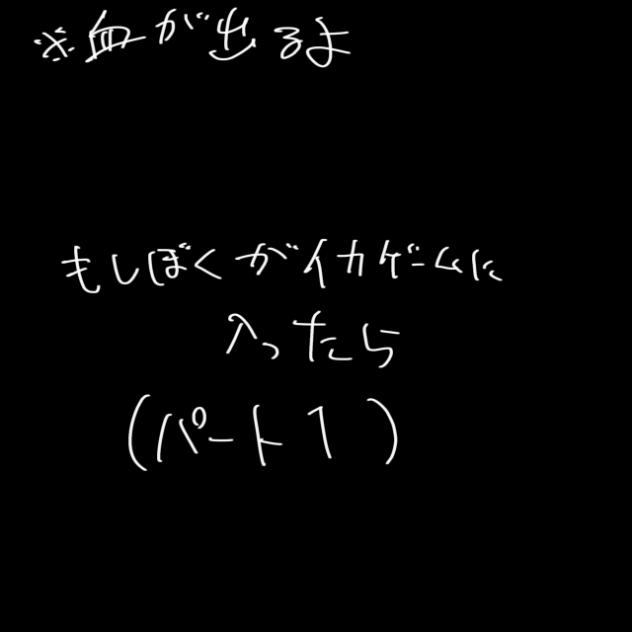 ※血が出るよ
もしぼくがイカゲームに
入ったら
(パート1)